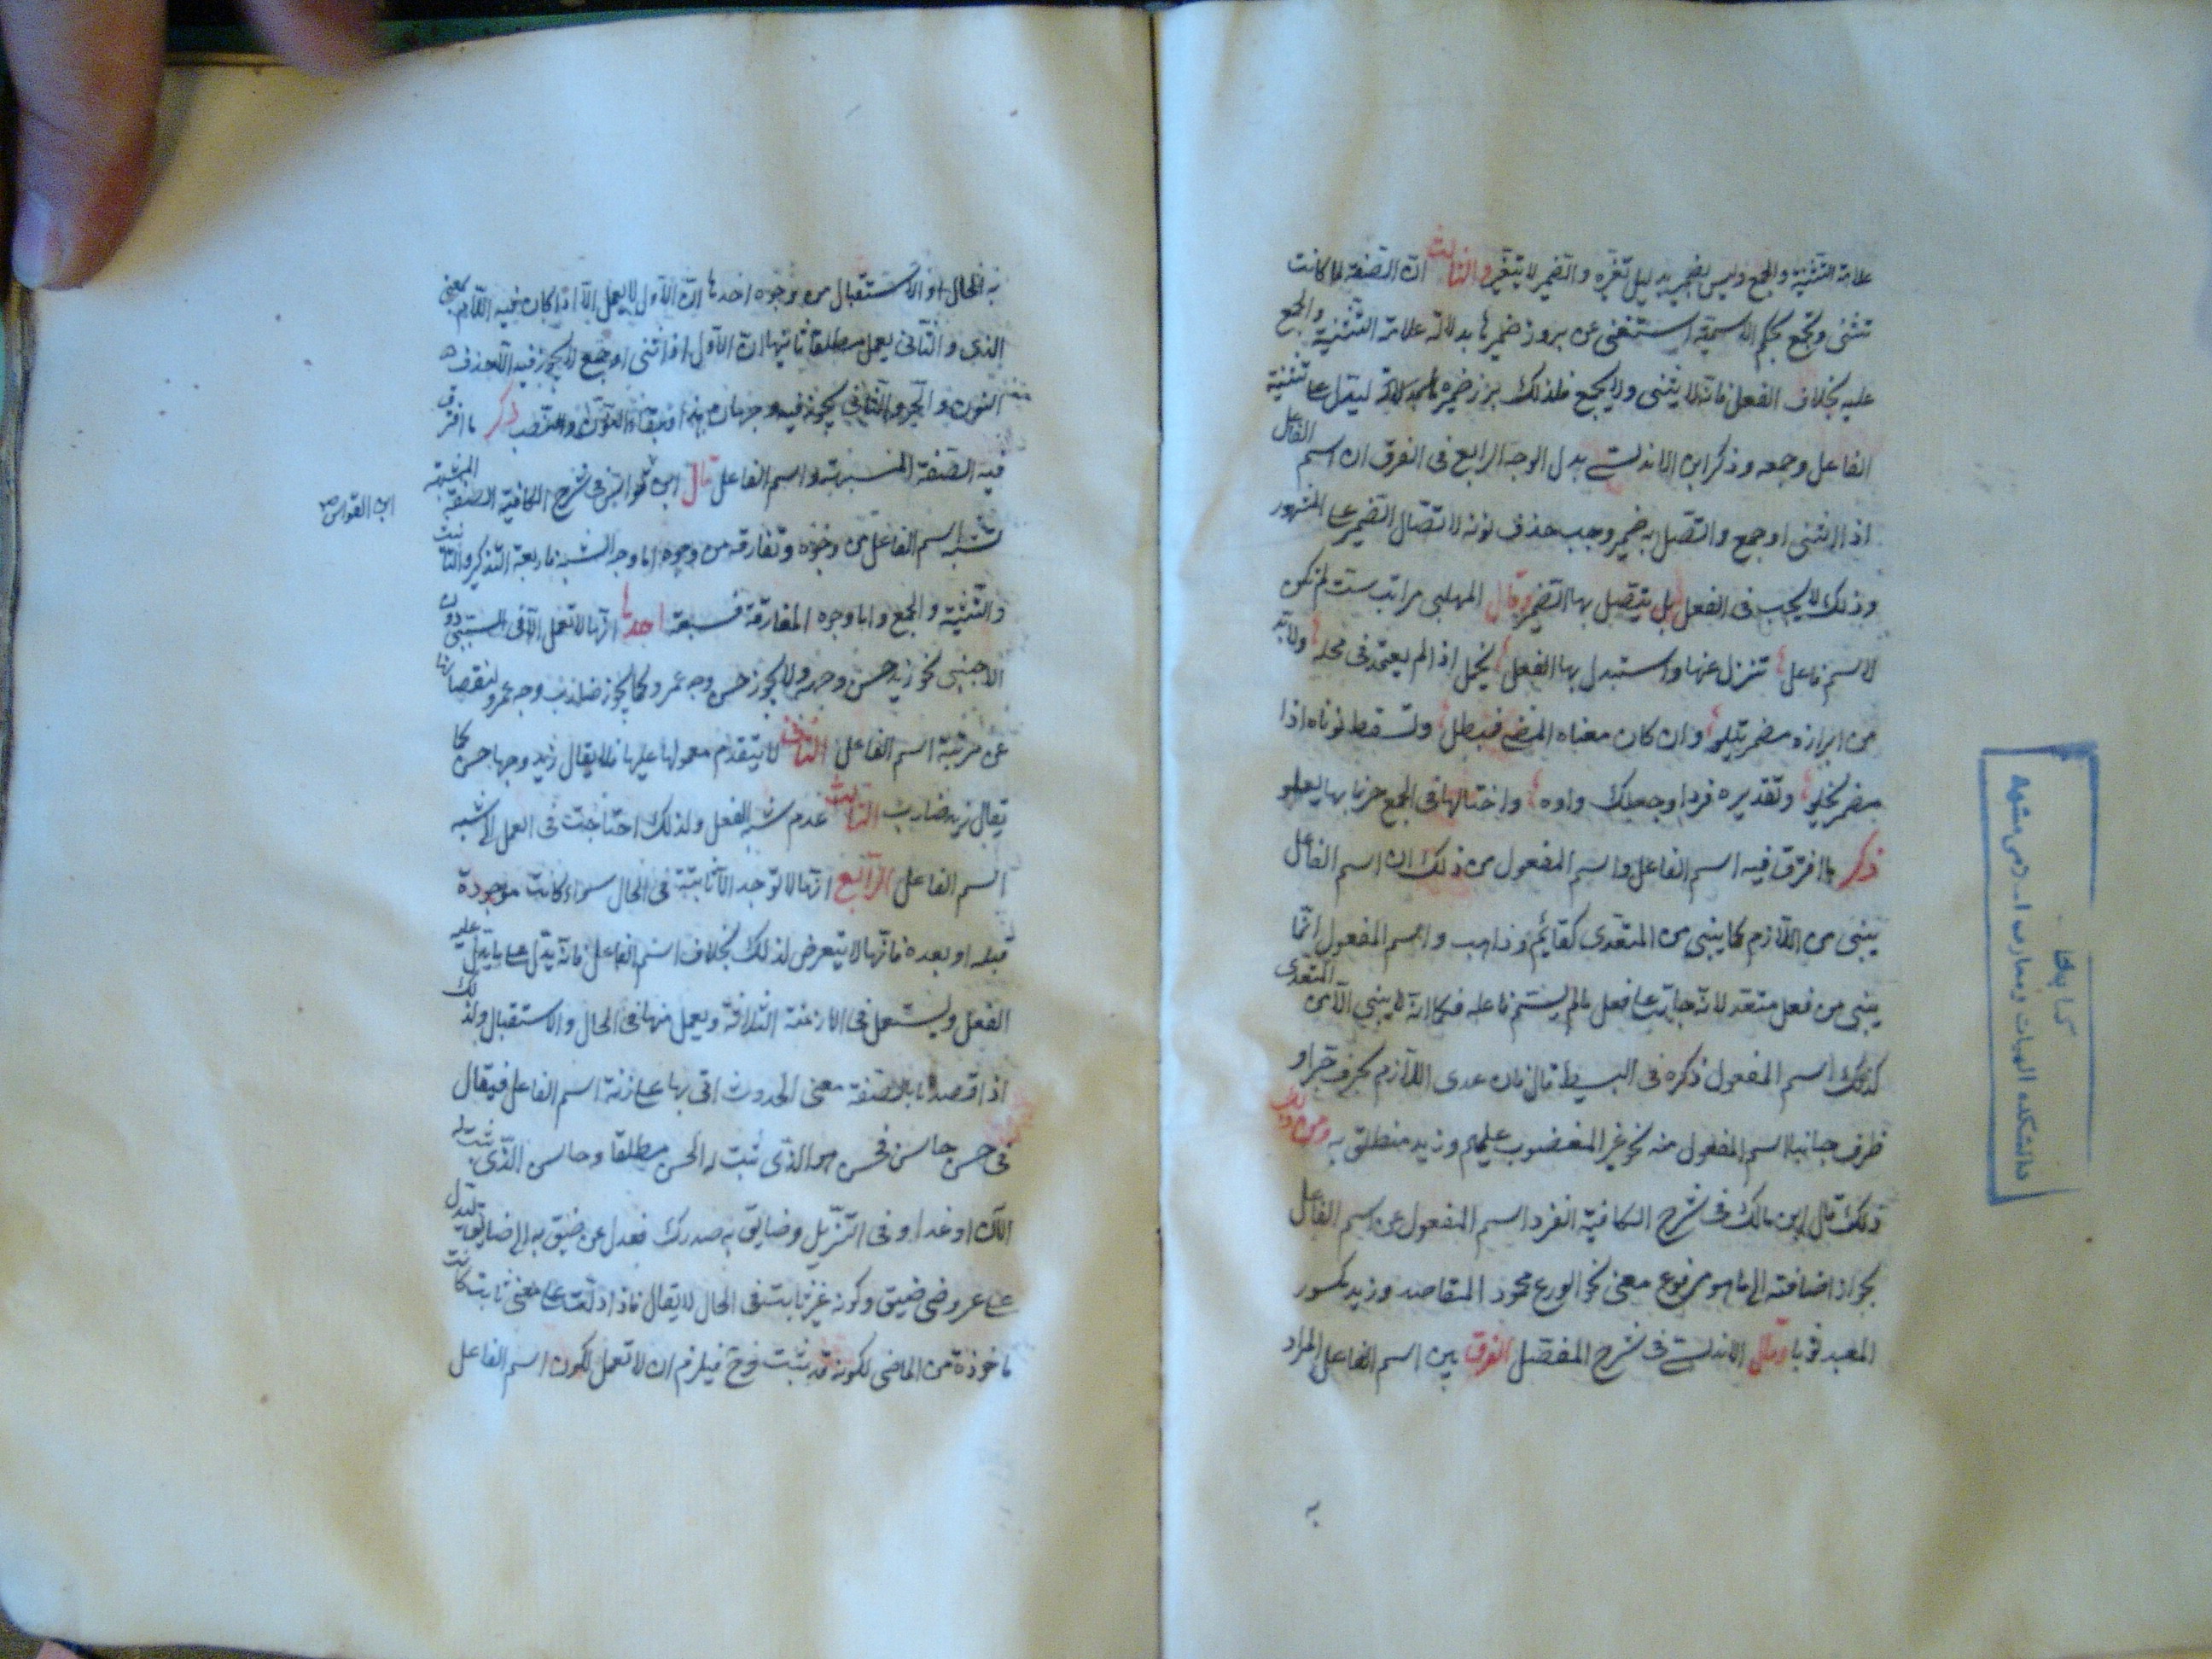 علامة التثنية والجمع وليس بضمير بدليل تغيره والضمير لا يتغير والثالث ان الصفة لما كانت
تثنى وتجمع بحكم الاسمية استغنى عن بروز ضميرها بدلالة علامة التثنية والجمع
عليه بخلاف الفعل فانه لا يثنى ولا يجمع فلذلك برز ضميره ليدل على تثنية
الفاعل وجمعه وذكر ابن الاندلسى بدل الوجه الرابع فى الفرق ان اسم الفاعل
اذا ثنى او جمع واتصل به ضمير وجب حذف نونه لاتصال الضمير على المشهور
وذلك لا يجب فى الفعل بل يتصل بها الضمير وقال المهلبى مراتب ست لم تكن
لاسم فاعل تنزل عنها واستبدل بها الفعل يخمل اذا لم يعتمد فى محله ولا بد
من ابرازه مضمر يتلو وان كان معناه المضى فبطل وتسقط نوناه اذا
مضمر يخلو وتقديره فردا وجعلك واوه واختالها فى الجمع حرفا بها يعلو
ذكر ما افترق فيه اسم الفاعل واسم المفعول من ذلك ان اسم الفاعل
يبنى من اللازم كما يبنى من المتعدى كقائم وذاهب واسم المفعول انما
يبنى من فعل متعد لانه جار على فعل ما لم يسم فاعله فكما انه لا يبنى الا من المتعدى
كذلك اسم المفعول ذكره فى البسيط قال فان عدى اللازم بحرف جر او
ظرف جاز بناء اسم المفعول منه نحو غير المغضوب عليهم وزيد منطلق به ومن
ذلك قال ابن مالك فى شرح الكافية انفرد اسم المفعول عن اسم الفاعل
بجواز اضافته الى ما هو مرفوع معنى نحو الورع محمود المقاصد وزيد مكسو
العبد ثوبا وقال الاندلسى فى شرح المفصل الفرق بين اسم الفاعل المراد
به
كتابخانه
دانشكده الهيات ومعارف اسلامى مشهد
به الحال او الاستقبال من وجوه احدها ان الاول لا يعمل الا اذا كان فيه اللام بمعنى
الذى والثانى يعمل مطلقا ثانيها ان الاول اذا ثنى او جمع لا يجوز فيه الا حذف
النون والجر والثانى يجوز فيه وجهان هذا وبقاء النون والنصب ذكر ما افترق
فيه الصفة المشبهة واسم الفاعل قال ابن القواس فى شرح الكافية الصفة المشبهة
تشبه اسم الفاعل من وجوه وتفارقه من وجوه اما وجه الشبه فاربعة التذكير والتانيث
والتثنية والجمع واما وجوه المفارقة فسبعة احدها انها لا تعمل الا فى السببى دون
الاجنبى نحو زيد حسن وجهه ولا يجوز حسن وجه عمرو كما يجوز ضارب وجه عمرو لنقصانها
عن مرتبة اسم الفاعل الثانى لا يتقدم معمولها عليها فلا يقال زيد وجها حسن كما
يقال زيد ضارب الثالث عدم شبه الفعل ولذلك احتاجت فى العمل الى شبه
اسم الفاعل الرابع انها لا توجد الا ثابتة فى الحال سواء كانت موجودة
قبله او بعده فانها لا يتعرض لذلك بخلاف اسم الفاعل فانه يدل على ما يدل عليه
الفعل ويستعمل فى الازمنة الثلاثة ويعمل منها فى الحال والاستقبال ولذلك
اذا قصد بالصفة معنى الحدوث اتى بها على زنة اسم الفاعل فيقال
فى حسن حاسن فحسن هو الذى ثبت له الحسن مطلقا وحاسن الذى ثبت له
الآن او غدا وفى التنزيل وضايق به صدرك فعدل عن ضيق به الى ضايق ليدل
على عروض ضيق وكونه غير ثابت فى الحال لا يقال فاذا دلت على معنى ثابت كانت
ماخوذة من الماضى لكونه قد ثبت وح فيلزم ان لا تعمل لكون اسم الفاعل
ابن القواس